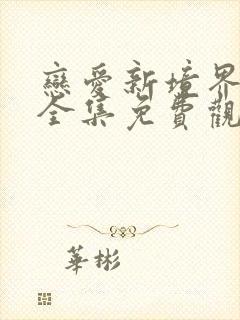 戀愛新境界
全集免費觀
華彬